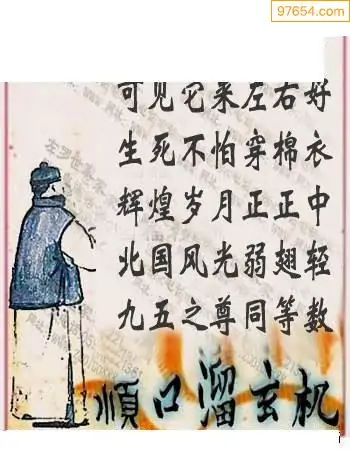 97654.com
可见它来左右好
生死不怕穿棉衣
辉煌岁月正正中
北国风光弱翅轻
九五之尊同等数
順口溜玄机